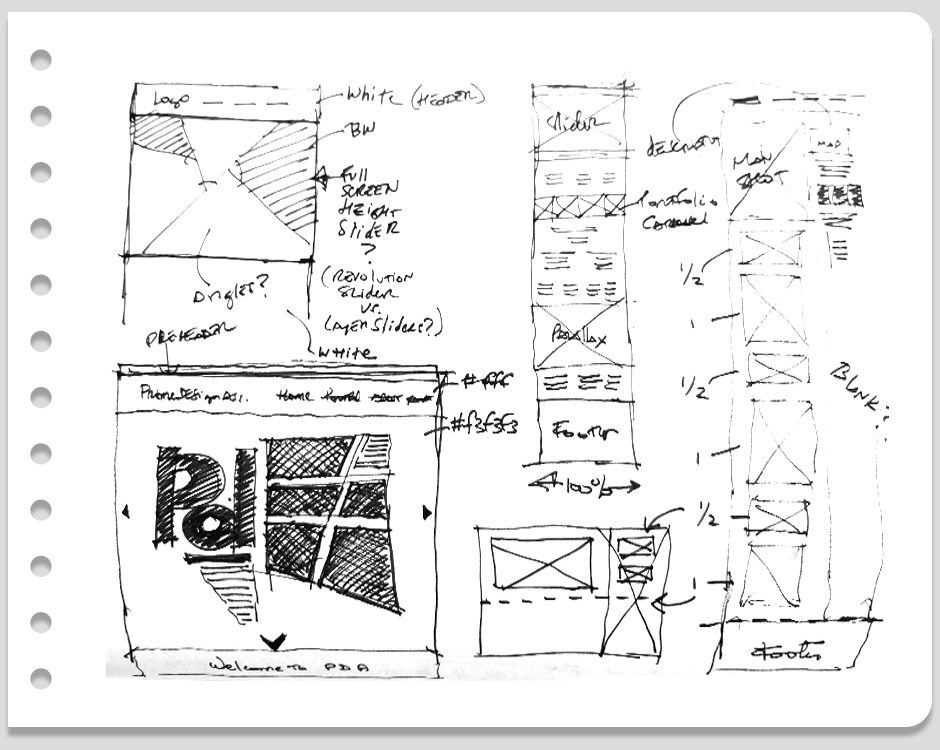 Logo
White (HEADER)
BW
Full
SCREEN
HEIGHT
SLIDER
?
(REVOLUTION
SLIDER
VS.
LAYER SLIDERS?)
ANGLES?
WHITE
PREHEADER
#fff
HOME
#f3f3f3
Pd
Welcome to PDA
Slider
Portfolio
CAROUSEL
Parallax
Footer
100%
MAIN
MAP
1/2
1
1/2
1
1/2
1
BLANK?
Footer